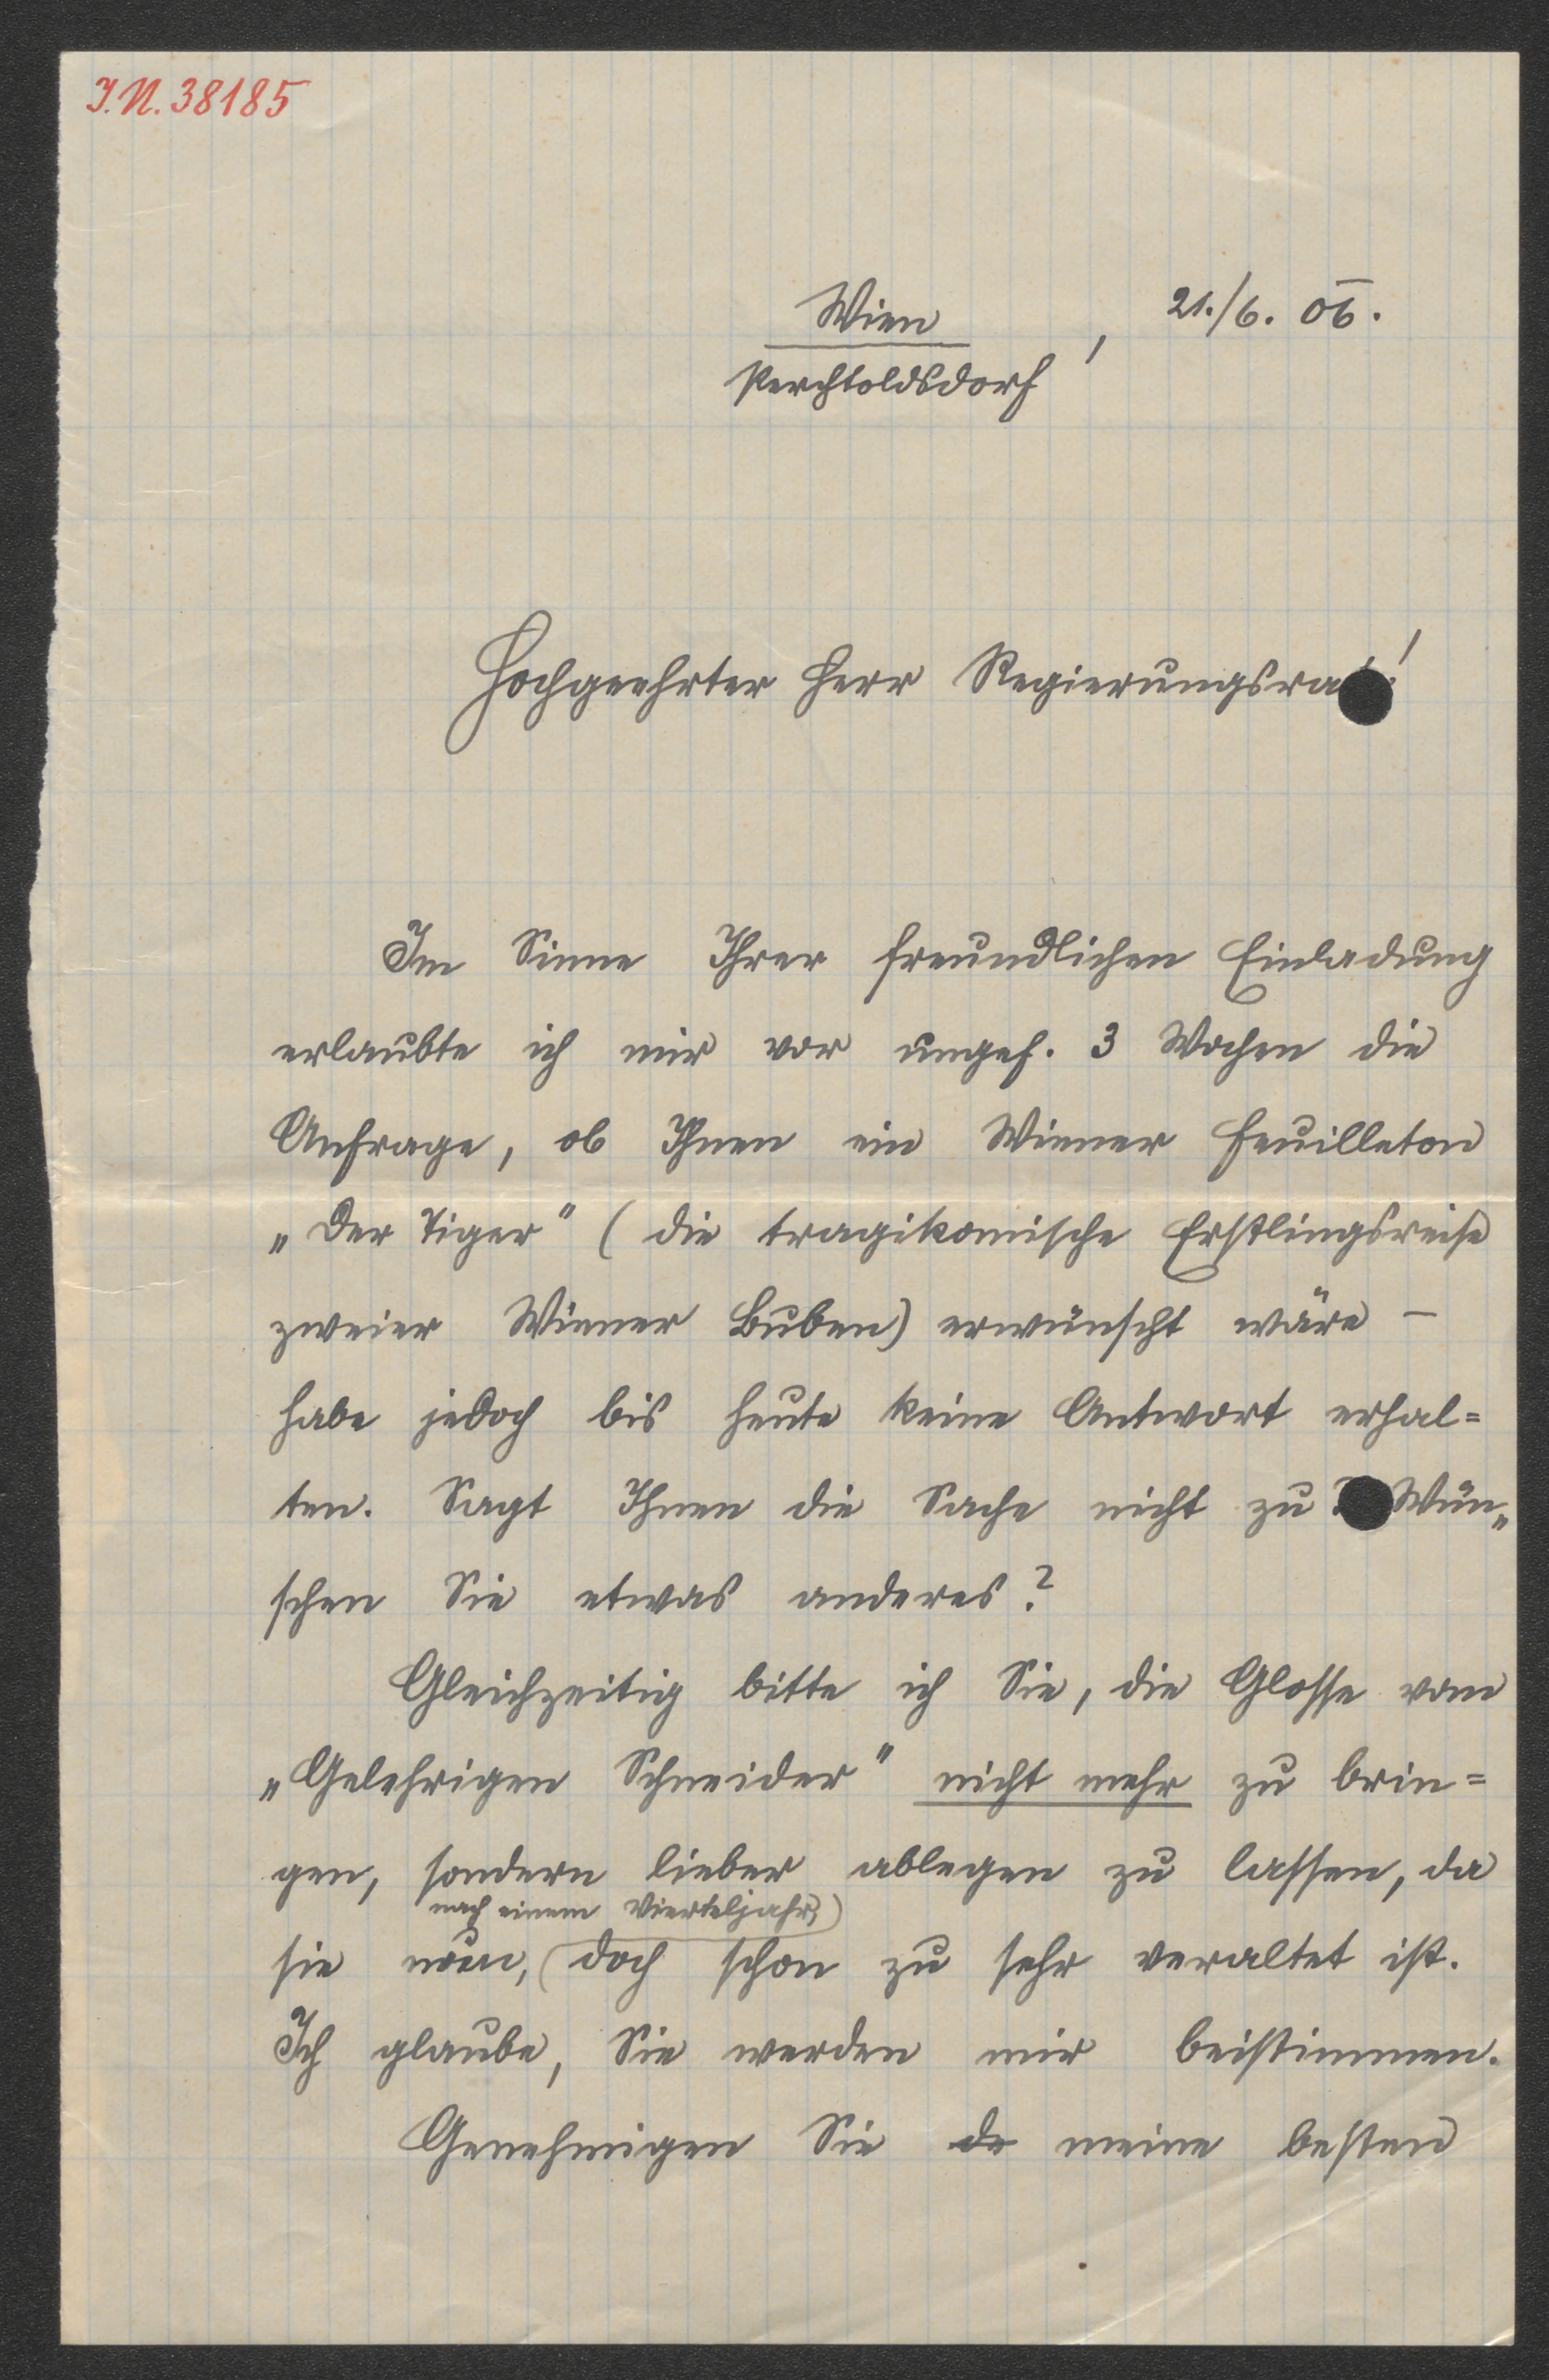 I.N. 38185
Wien
Perchtoldsdorf, 21./6. 06.
Hochgeehrter Herr Regierungsrat!
Im Sinne Ihrer freundlichen Einladung
erlaubte ich mir vor ungef. 3 Wochen die
Anfrage, ob Ihnen ein Wiener Feuilleton
„Der Tiger" (die tragikomische Erstlingsreise
zweier Wiener Buben) erwünscht wäre –
habe jedoch bis heute keine Antwort erhal=
ten. Sagt Ihnen die Sache nicht zu? Wün„
schen Sie etwas anderes?
Gleichzeitig bitte ich Sie, die Glosse vom
„Gelehrigen Schneider" nicht mehr zu brin=
gen, sondern lieber ablegen zu lassen, da
nach einem Vierteljahr,
sie nun, doch schon zu sehr veraltet ist.
Ich glaube, Sie werden mir beistimmen.
Genehmigen Sie de meine besten